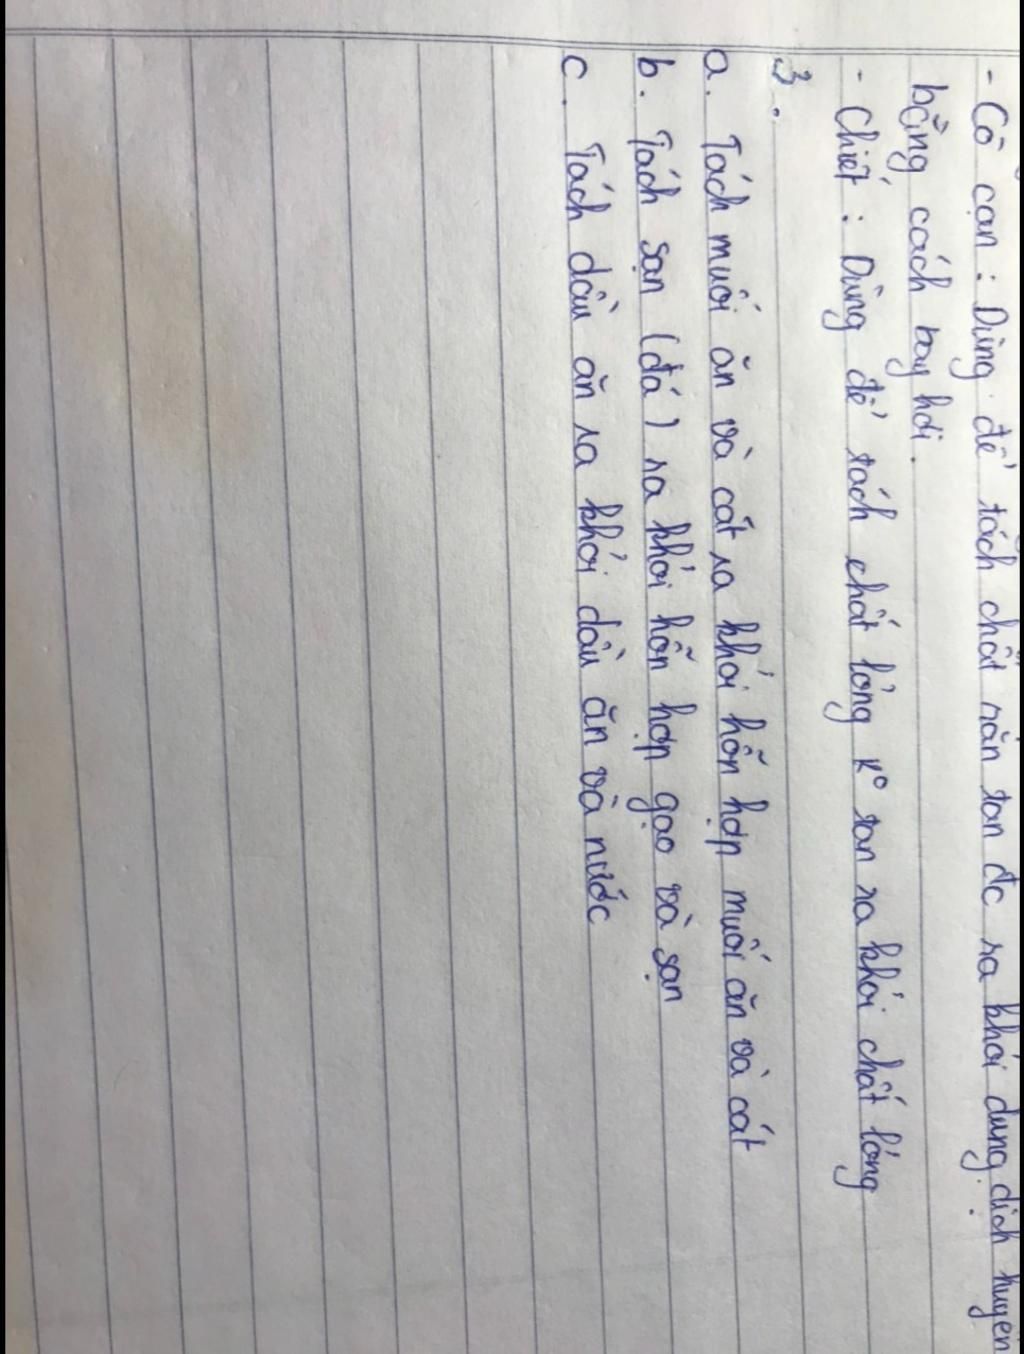 - Cô cạn : Dùng để tách chất rắn tan đc ra khỏi dung dịch huyền
bằng cách bay hơi.
- Chiết : Dùng để tách chất lỏng ko tan ra khỏi chất lỏng
3.
a. Tách muối ăn và cát ra khỏi hỗn hợp muối ăn và cát
b. Tách sạn (đá) ra khỏi hỗn hợp gạo và sạn
c. Tách dầu ăn ra khỏi dầu ăn và nước